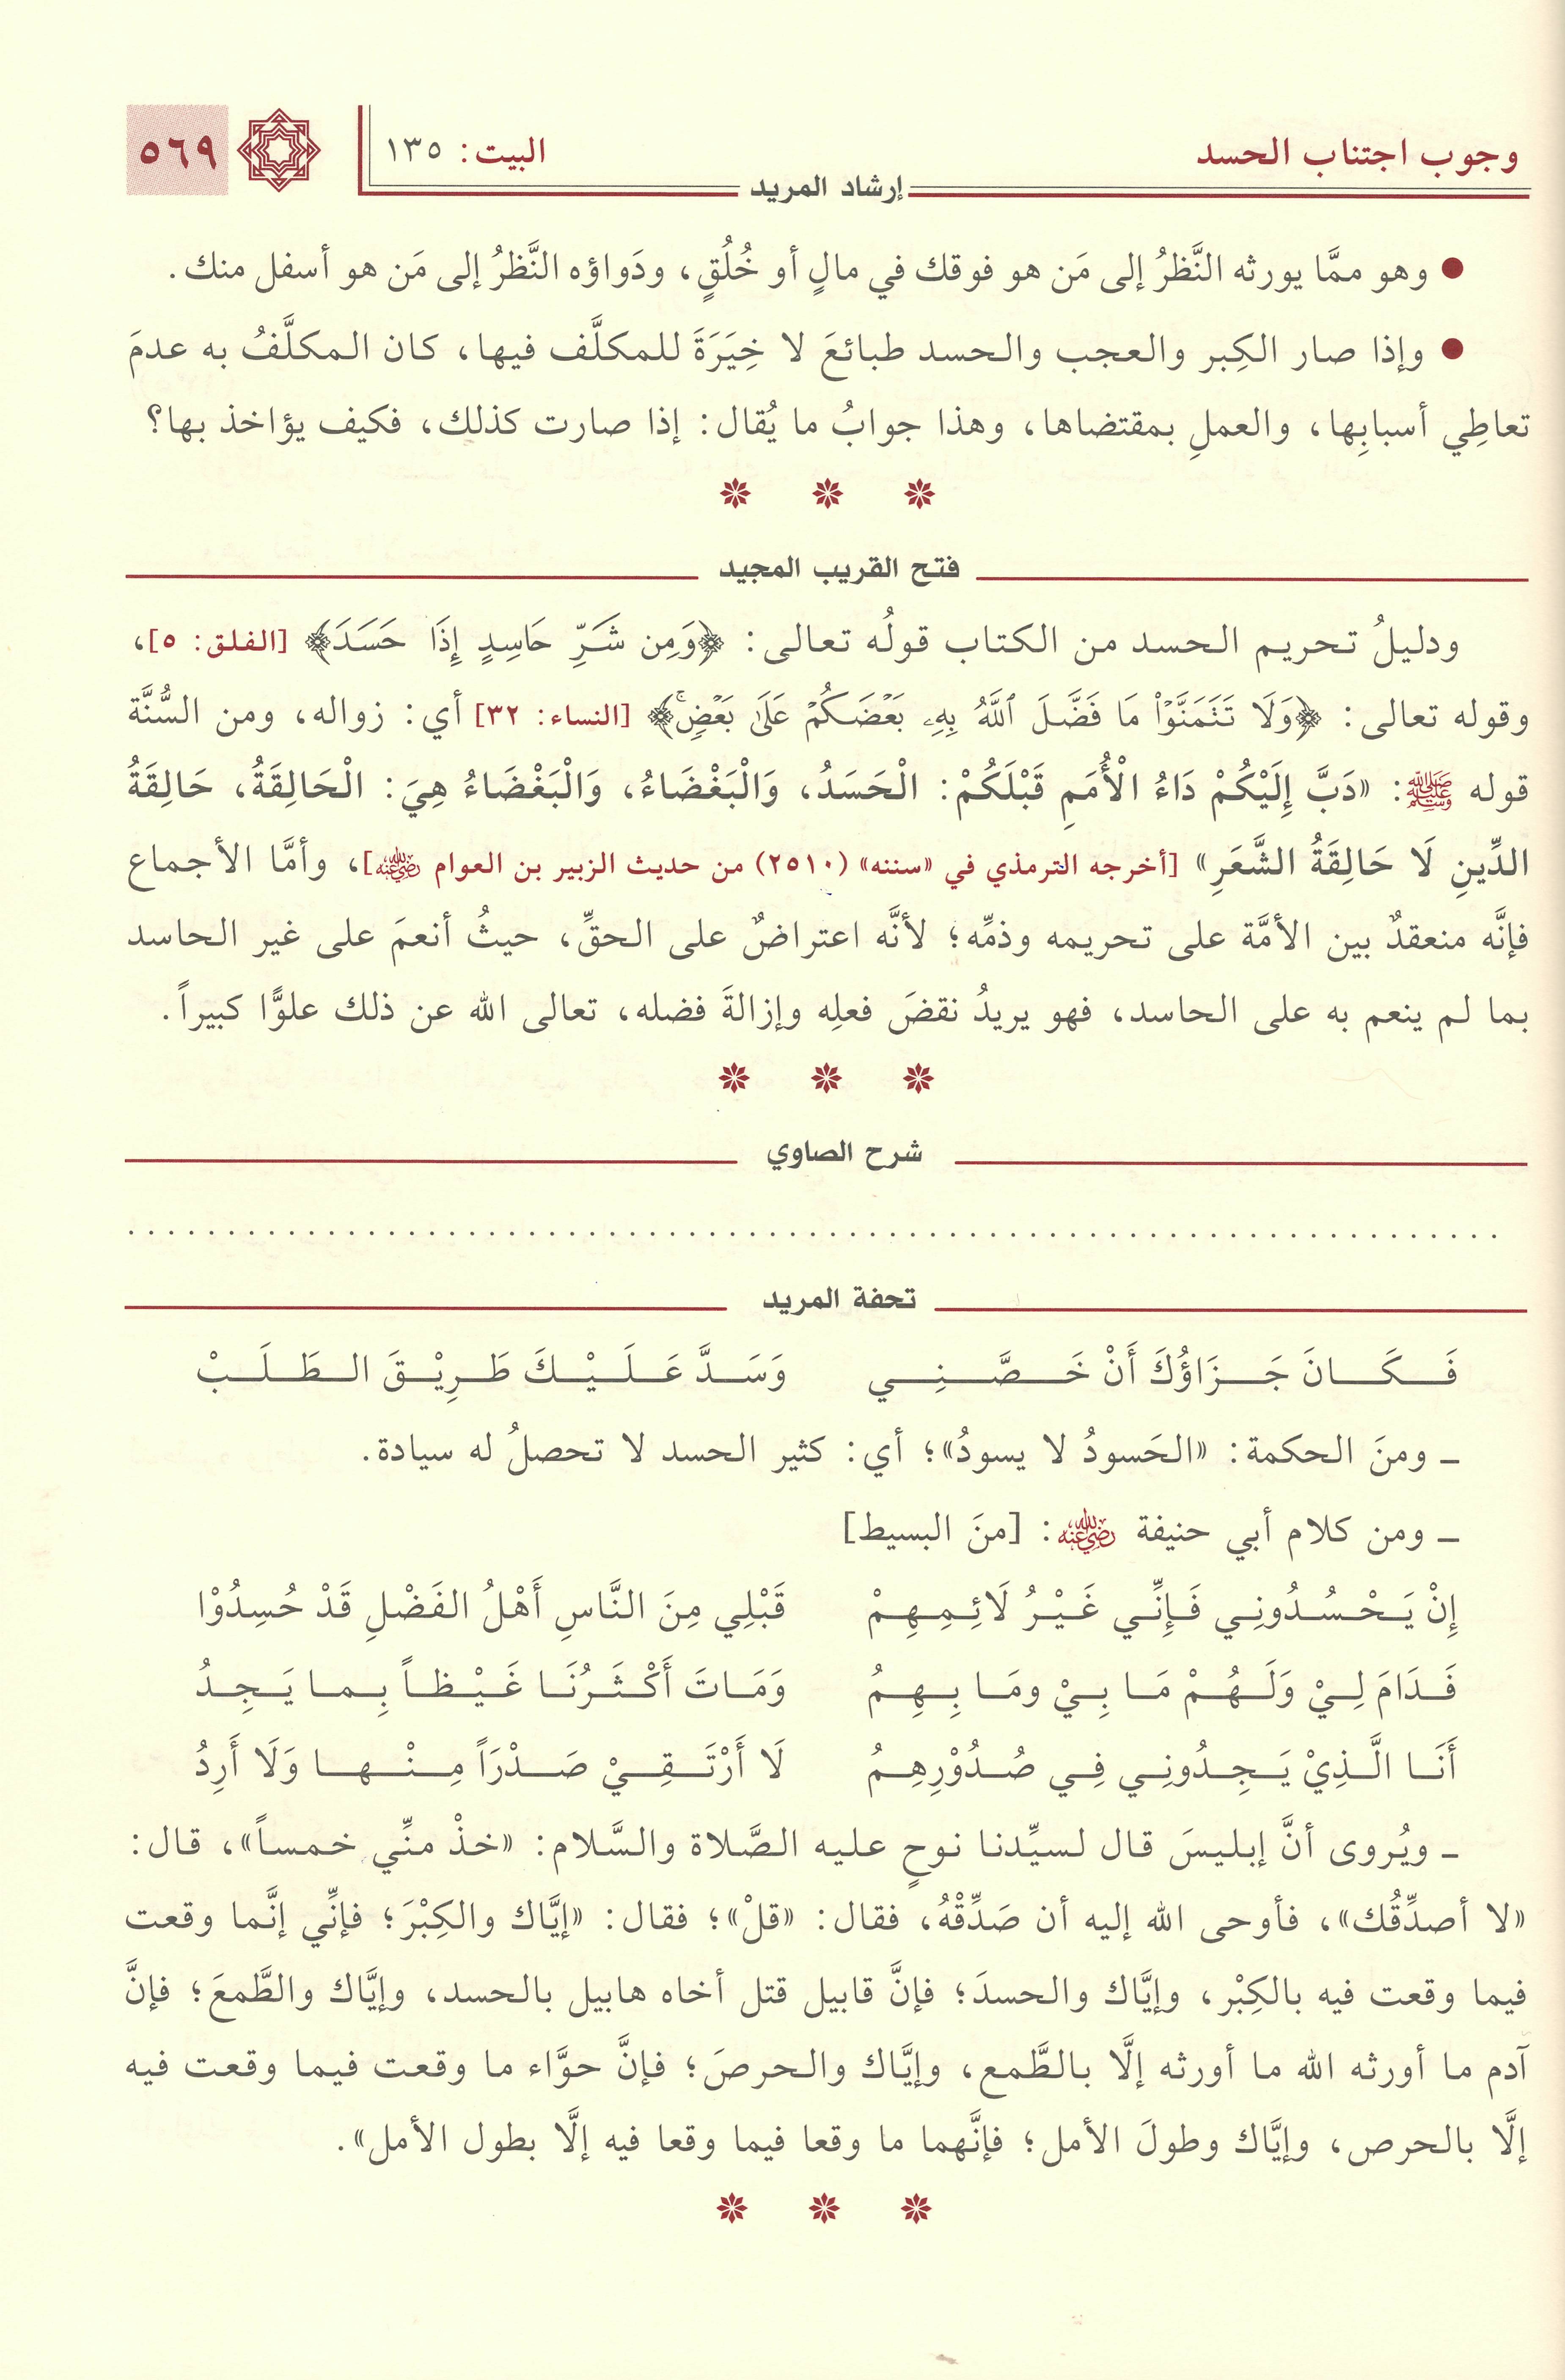 وجوب اجتناب الحسد
البيت: ١٣٥
٥٦٩
إرشاد المريد
● وهو ممَّا يورثه النَّظرُ إلى مَن هو فوقك في مالٍ أو خُلُقٍ، ودَواؤه النَّظرُ إلى مَن هو أسفل منك.
● وإذا صار الكِبر والعجب والحسد طبائعَ لا خِيَرَةَ للمكلَّف فيها، كان المكلَّفُ به عدمَ
تعاطِي أسبابِها، والعملِ بمقتضاها، وهذا جوابُ ما يُقال: إذا صارت كذلك، فكيف يؤاخذ بها؟
فتح القريب المجيد
ودليلُ تحريم الحسد من الكتاب قولُه تعالى: ﴿وَمِن شَرِّ حَاسِدٍ إِذَا حَسَدَ﴾ [الفلق: ٥]،
وقوله تعالى: ﴿وَلَا تَتَمَنَّوۡاْ مَا فَضَّلَ ٱللَّهُ بِهِۦ بَعۡضَكُمۡ عَلَىٰ بَعۡضٖۚ﴾ [النساء: ٣٢] أي: زواله، ومن السُّنَّة
قوله ﷺ: «دَبَّ إِلَيْكُمْ دَاءُ الْأُمَمِ قَبْلَكُمْ: الْحَسَدُ، وَالْبَغْضَاءُ، وَالْبَغْضَاءُ هِيَ: الْحَالِقَةُ، حَالِقَةُ
الدِّينِ لَا حَالِقَةُ الشَّعَرِ» [أخرجه الترمذي في «سننه» (٢٥١٠) من حديث الزبير بن العوام رضي الله عنه]، وأمَّا الأجماع
فإنَّه منعقدٌ بين الأمَّة على تحريمه وذمِّه؛ لأنَّه اعتراضٌ على الحقِّ، حيثُ أنعمَ على غير الحاسد
بما لم ينعم به على الحاسد، فهو يريدُ نقضَ فعلِه وإزالةَ فضله، تعالى الله عن ذلك علوًّا كبيراً.
شرح الصاوي
................................................................
تحفة المريد
فَكَانَ جَزَاؤُكَ أَنْ خَصَّنِي وَسَدَّ عَلَيْكَ طَرِيْقَ الطَلَبْ
ـ ومنَ الحكمة: «الحَسودُ لا يسودُ»؛ أي: كثير الحسد لا تحصلُ له سيادة.
ـ ومن كلام أبي حنيفة رضي الله عنه: [منَ البسيط]
إِنْ يَحْسُدُونِي فَإِنِّي غَيْرُ لَائِمِهِمْ قَبْلِي مِنَ النَّاسِ أَهْلُ الفَضْلِ قَدْ حُسِدُوْا
فَدَامَ لِيْ وَلَهُمْ مَا بِيْ ومَا بِهِمُ وَمَاتَ أَكْثَرُنَا غَيْظاً بِما يَجِدُ
أَنَا الَّذِيْ يَجِدُونِي فِي صُدُوْرِهِمُ لَا أَرْتَقِيْ صَدْرَاً مِنْها وَلَا أَرِدُ
ـ ويُروى أنَّ إبليسَ قال لسيِّدنا نوحٍ عليه الصَّلاة والسَّلام: «خذْ منِّي خمساً»، قال:
«لا أصدِّقُك»، فأوحى الله إليه أن صَدِّقْهُ، فقال: «قلْ»؛ فقال: «إيَّاك والكِبْرَ؛ فإنِّي إنَّما وقعت
فيما وقعت فيه بالكِبْر، وإيَّاك والحسدَ؛ فإنَّ قابيل قتل أخاه هابيل بالحسد، وإيَّاك والطَّمعَ؛ فإنَّ
آدم ما أورثه الله ما أورثه إلَّا بالطَّمع، وإيَّاك والحرصَ؛ فإنَّ حوَّاء ما وقعت فيما وقعت فيه
إلَّا بالحرص، وإيَّاك وطولَ الأمل؛ فإنَّهما ما وقعا فيما وقعا فيه إلَّا بطول الأمل».